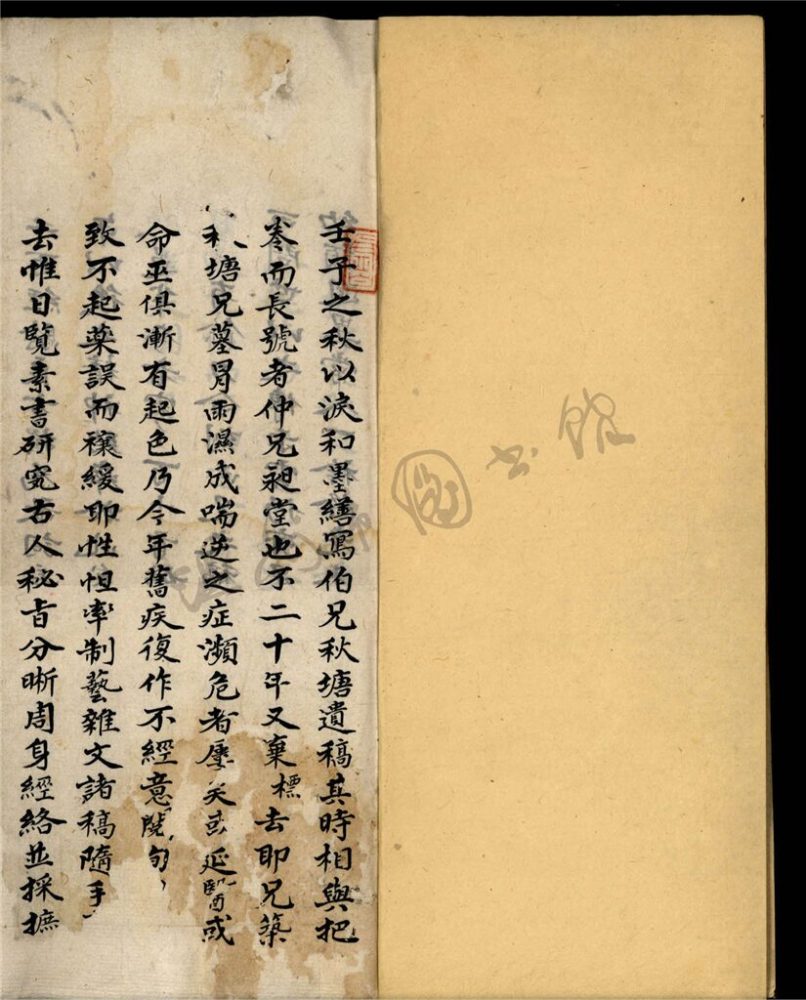 壬子之秋以淚和墨繕寫伯兄秋塘遺稿其時相與把
卷而長號者仲兄昶堂也不二十年又棄標去耶兄築
秋塘兄墓冒雨濕成喘逆之症瀕危者屢矣或延醫或
命巫俱漸有起色乃今年舊疾復作不經意
致不起藥誤而禳緩耶性怛率制藝雜文諸稿隨手
去惟日覽素書研究古人秘旨分晰周身經絡並採摭